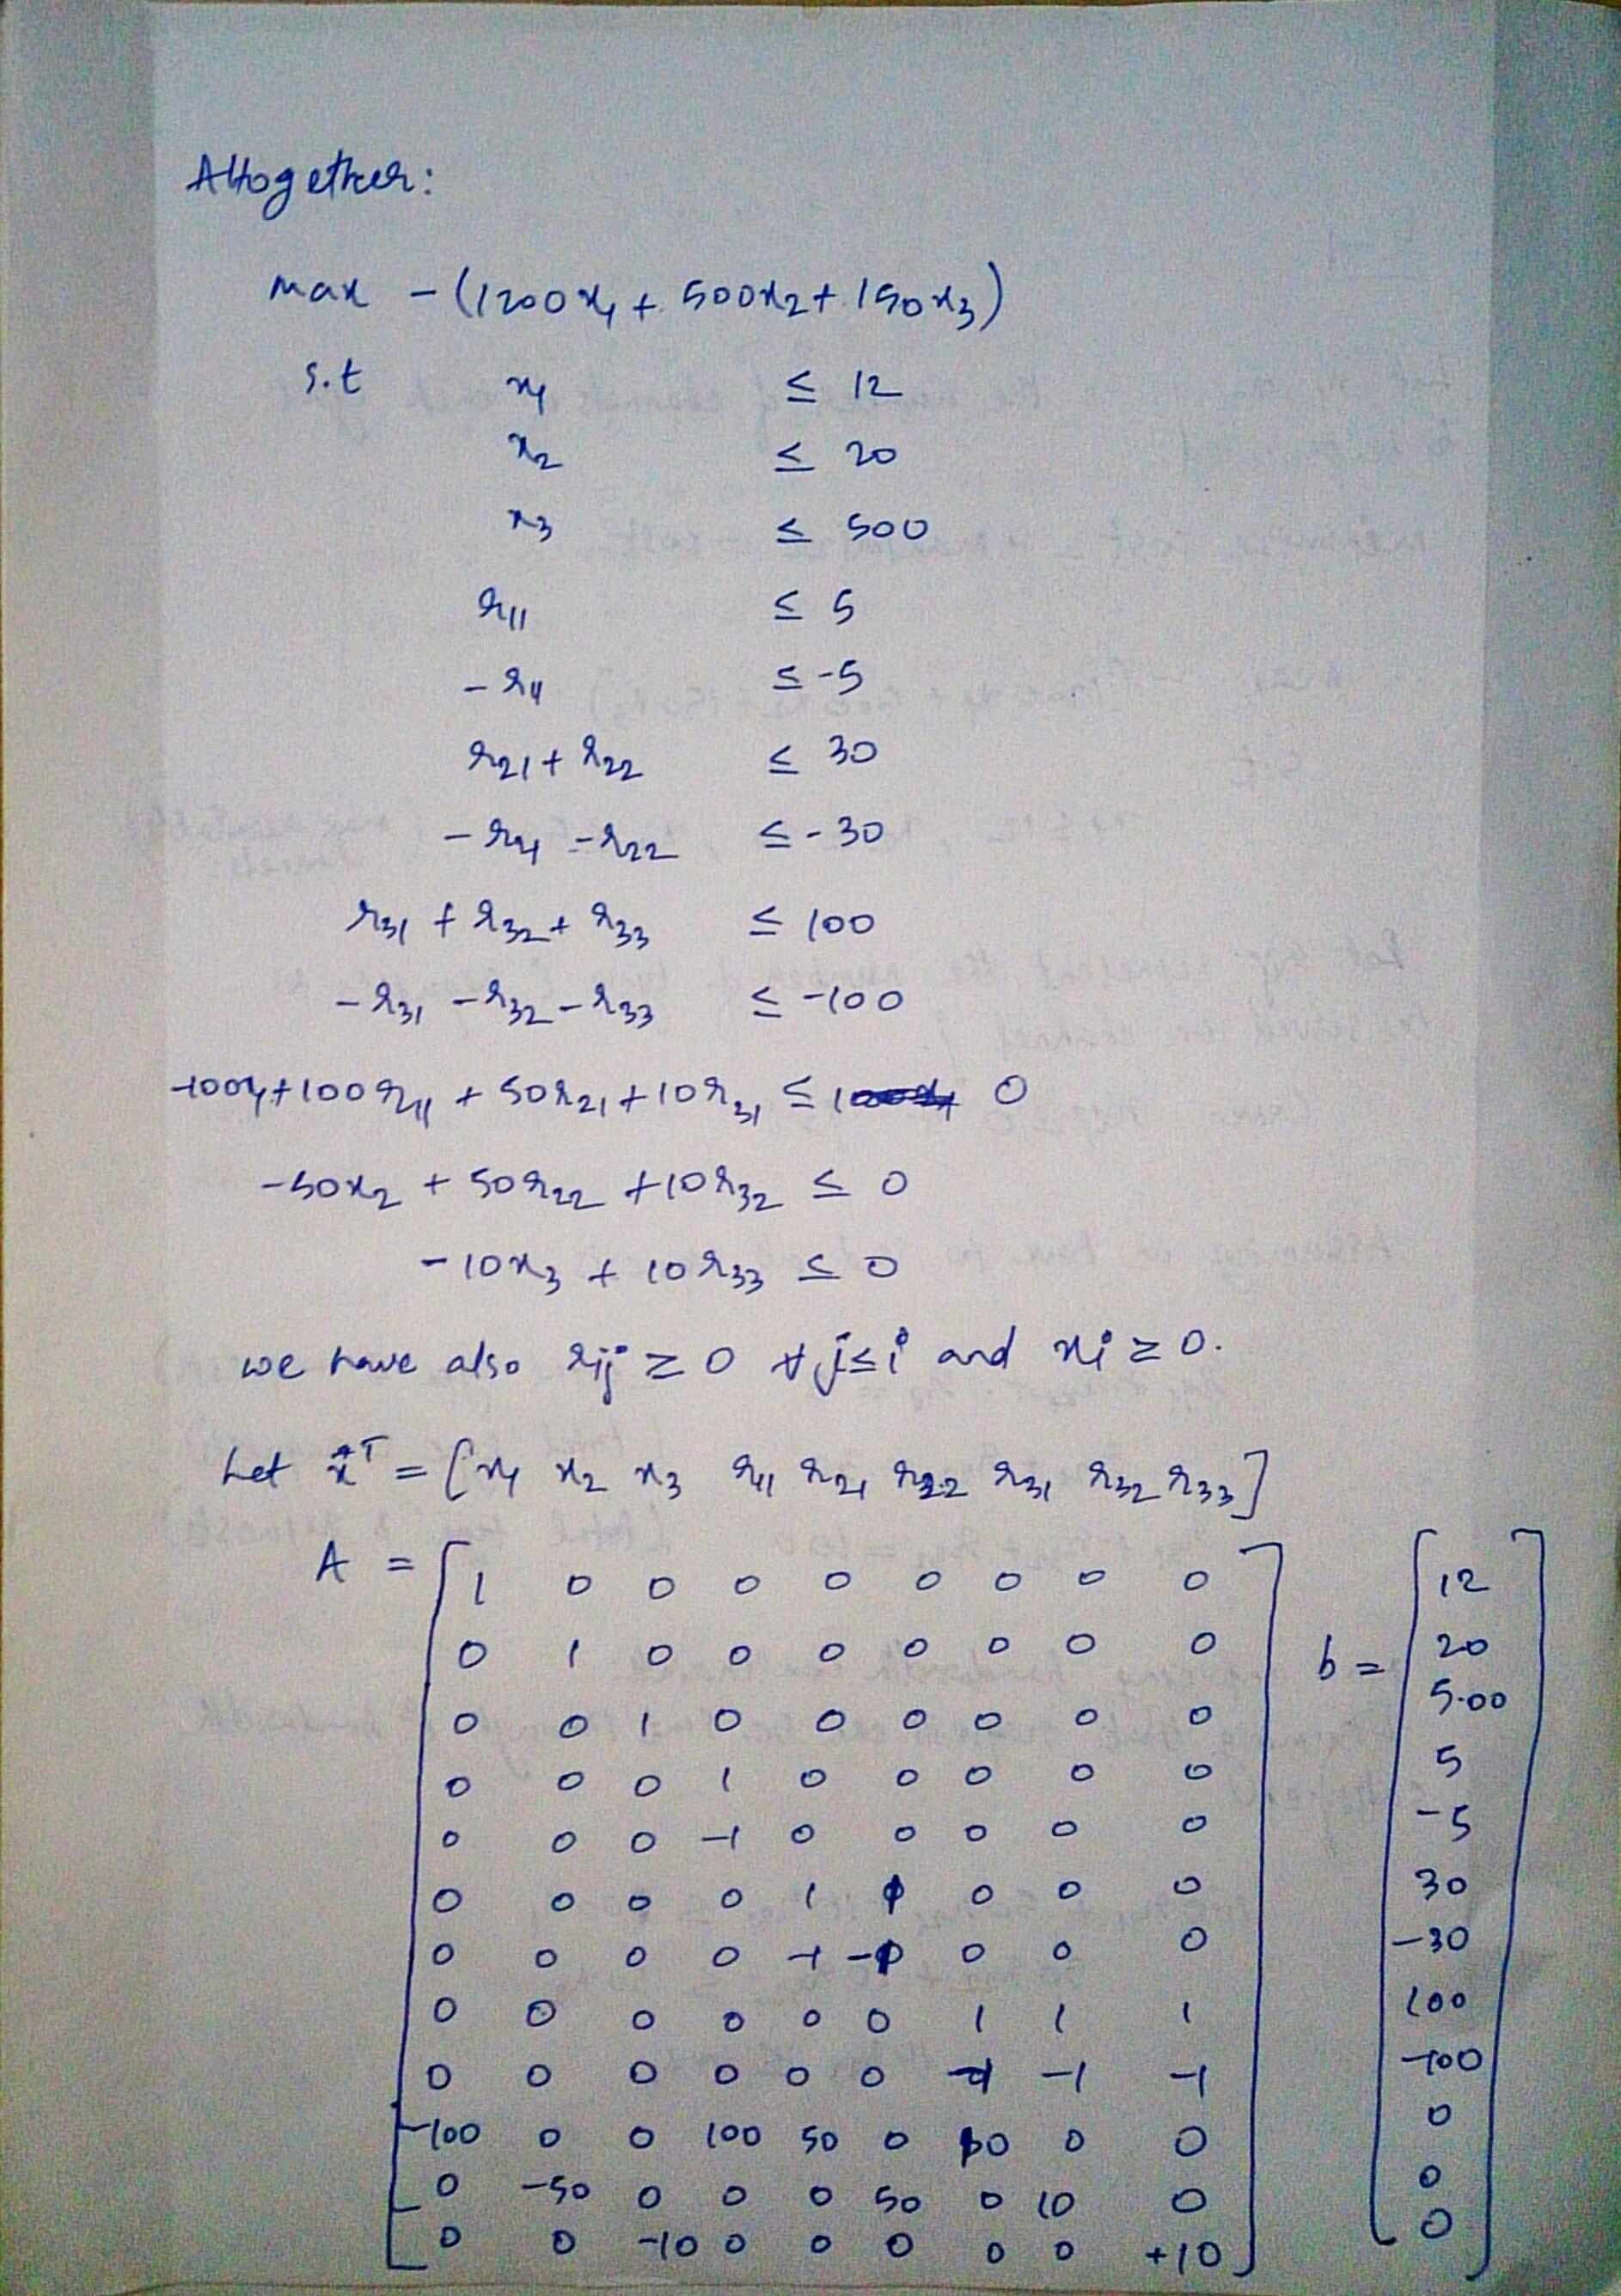 Altogether:
max - (1200x₁ + 500x₂ + 150x₃)
s.t x₁ ≤ 12
x₂ ≤ 20
x₃ ≤ 500
r₁₁ ≤ 5
-r₁₁ ≤ -5
r₂₁ + r₂₂ ≤ 30
-r₂₁ - r₂₂ ≤ -30
r₃₁ + r₃₂ + r₃₃ ≤ 100
-r₃₁ - r₃₂ - r₃₃ ≤ -100
-100x₁ + 100r₁₁ + 50r₂₁ + 10r₃₁ ≤ 0
-50x₂ + 50r₂₂ + 10r₃₂ ≤ 0
-10x₃ + 10r₃₃ ≤ 0
we have also rᵢⱼ ≥ 0 ∀ j≤i and xᵢ ≥ 0.
Let x̂ᵀ = [x₁ x₂ x₃ r₁₁ r₂₁ r₂₂ r₃₁ r₃₂ r₃₃]
A = [ 1 0 0 0 0 0 0 0 0 ] b = [ 12 ]
0 1 0 0 0 0 0 0 0 20
0 0 1 0 0 0 0 0 0 500
0 0 0 1 0 0 0 0 0 5
0 0 0 -1 0 0 0 0 0 -5
0 0 0 0 1 1 0 0 0 30
0 0 0 0 -1 -1 0 0 0 -30
0 0 0 0 0 0 1 1 1 100
0 0 0 0 0 0 -1 -1 -1 -100
-100 0 0 100 50 0 10 0 0 0
0 -50 0 0 0 50 0 10 0 0
0 0 -10 0 0 0 0 0 +10 0